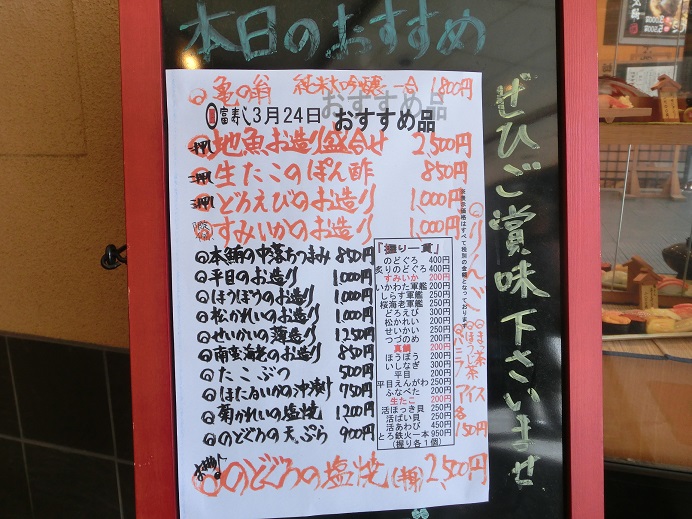 本日のおすすめ
ぜひご賞味下さいませ
亀の翁 純米大吟醸 一合 1,800円
富寿し 3月24日 おすすめ品
地魚お造り盛合せ 2,500円
生たこのぽん酢 850円
どろえびのお造り 1,000円
すみいかのお造り 1,000円
本鮪の中落ちつまみ 850円
平目のお造り 1,000円
ほうぼうのお造り 1,000円
松かれいのお造り 1,000円
せいかいの薄造り 1250円
南蛮海老のお造り 850円
たこぶつ 500円
ほたるいかの沖漬け 750円
菊かれいの塩焼 1200円
のどぐろの天ぷら 900円
のどぐろの塩焼(半身) 2,500円
『握り一貫』
のどぐろ 400円
炙りのどぐろ 400円
すみいか 200円
いかわた軍艦 250円
しらす軍艦 250円
桜海老軍艦 250円
どろえび 300円
松かれい 200円
せいかい 250円
つづのめ 200円
真鯛 200円
ほうぼう 200円
いしなぎ 300円
平目 200円
平目えんがわ 250円
ふなべた 200円
生たこ 200円
活ほっき貝 250円
活ばい貝 250円
活あわび 450円
とろ鉄火一本 950円
(握り各1個)
※表示価格はすべて税別の金額となっております。
りんご
まっ茶
ほうじ茶
バニラ
アイス
各150円